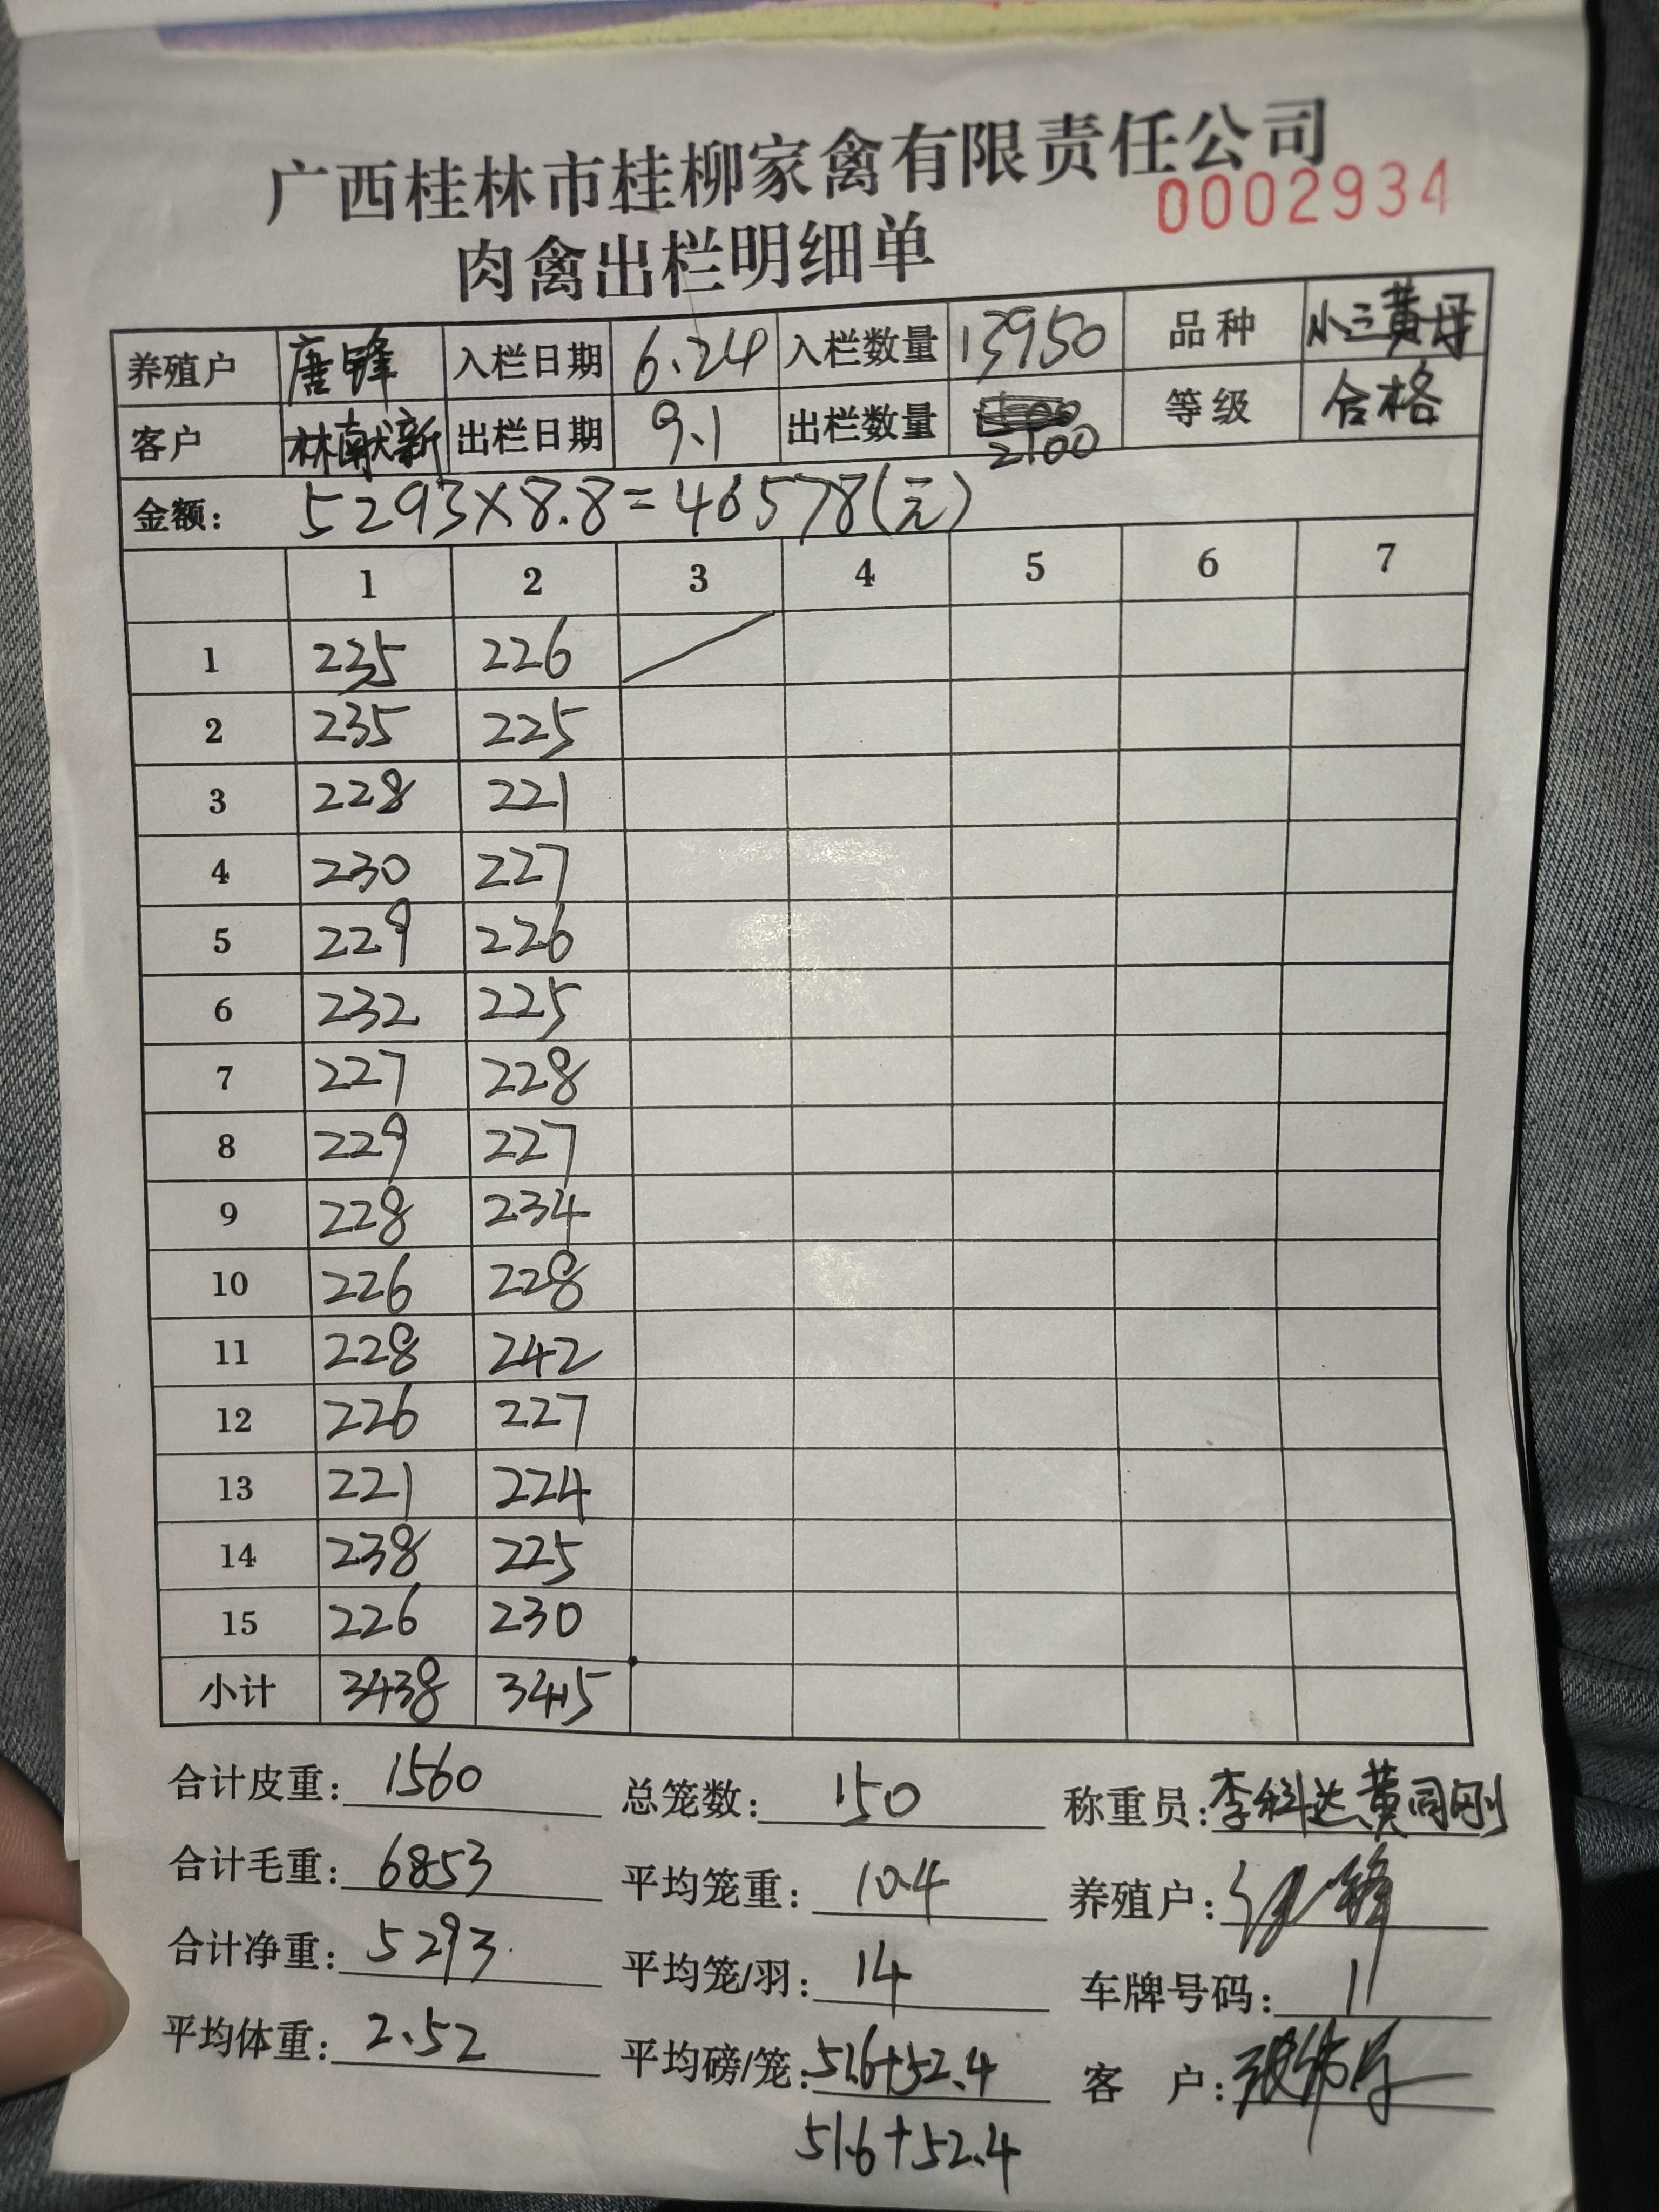 广西桂林市桂柳家禽有限责任公司
0002934
肉禽出栏明细单
养殖户 唐锋 入栏日期 6.24 入栏数量 13950 品种 小三黄母
客户 林献新 出栏日期 9.1 出栏数量 2100 等级 合格
金额: 5293×8.8=46578(元)
1 2 3 4 5 6 7
1 235 226
2 235 225
3 228 221
4 230 227
5 229 226
6 232 225
7 227 228
8 229 227
9 228 234
10 226 228
11 228 242
12 226 227
13 221 224
14 238 225
15 226 230
小计 3438 3415
合计皮重: 1560 总笼数: 150 称重员: 李科达 黄同刚
合计毛重: 6853 平均笼重: 10.4 养殖户: 锋
合计净重: 5293 平均笼/羽: 14 车牌号码: 11
平均体重: 2.52 平均磅/笼: 51.6+52.4 客 户:
51.6+52.4